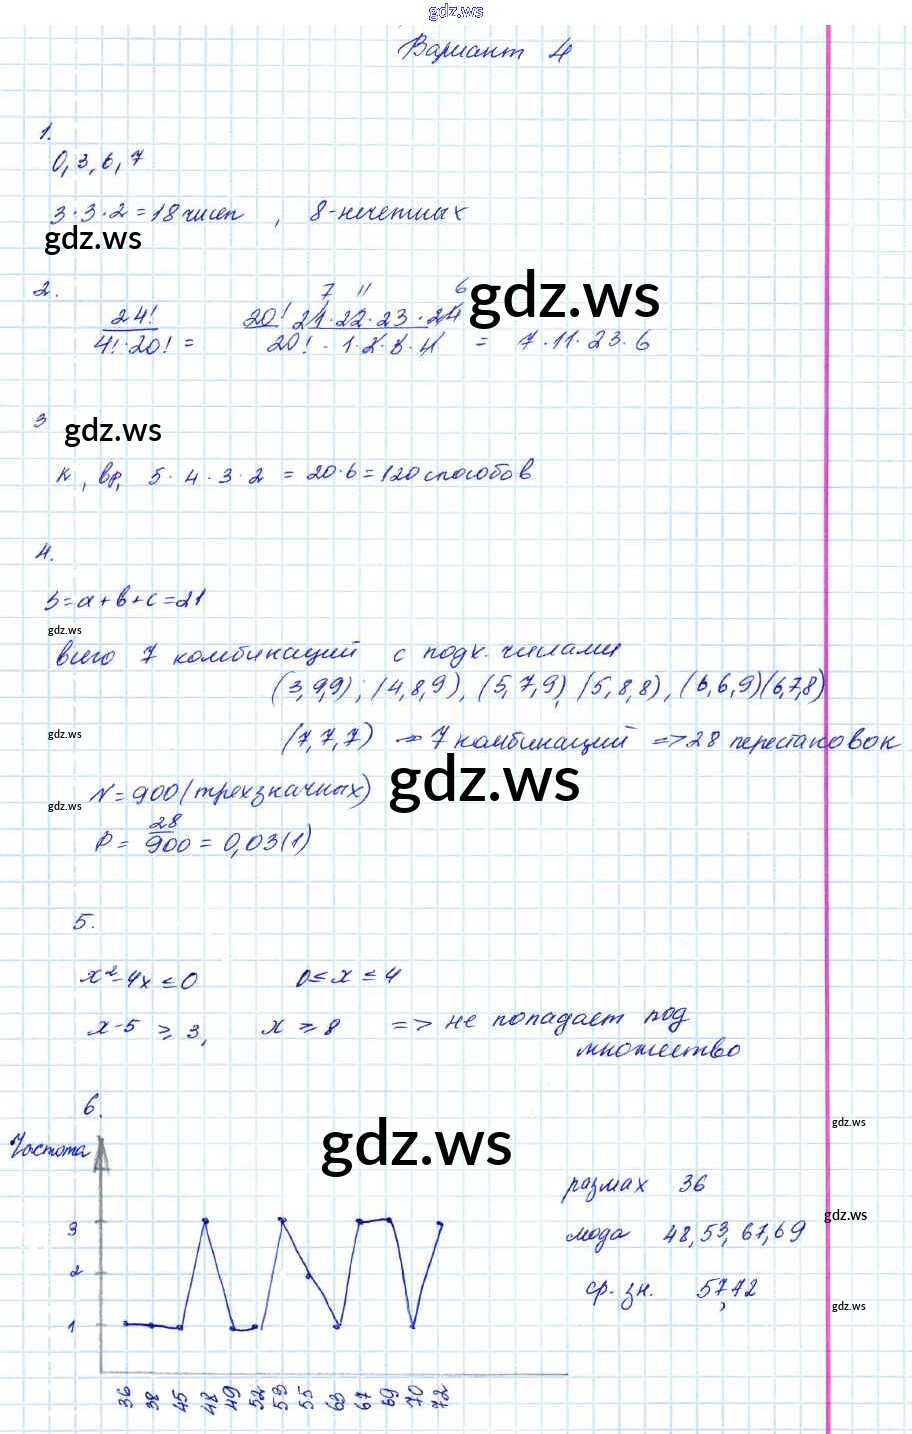 gdz.ws
Вариант 4
1.
0, 3, 6, 7
3·3·2 = 18 чисел , 8-нечетных
gdz.ws
2.
7 11 6
gdz.ws
24! 20! 21·22·23·24
4!·20! = 20! · 1·2·3·4 = 7·11·23·6
3
gdz.ws
к, вр, 5·4·3·2 = 20·6 = 120 способов
4.
S=a+b+c=21
gdz.ws
всего 7 комбинаций с подх. числами
(3,9,9); (4,8,9), (5,7,9), (5,8,8), (6,6,9)(6,7,8)
gdz.ws
(7,7,7) → 7 комбинаций => 28 перестановок
gdz.ws
N = 900 (трехзначных)
gdz.ws
P = 28/900 = 0,03(1)
5.
x²-4x ≤ 0 0 ≤ x ≤ 4
x-5 ≥ 3, x ≥ 8 => не попадает под
множество
6.
gdz.ws
Частота
gdz.ws
размах 36
3
gdz.ws
мода 48, 53, 67, 69
2
ср. зн. 57,12
gdz.ws
1
36 38 45 48 49 52 53 55 63 67 69 70 72